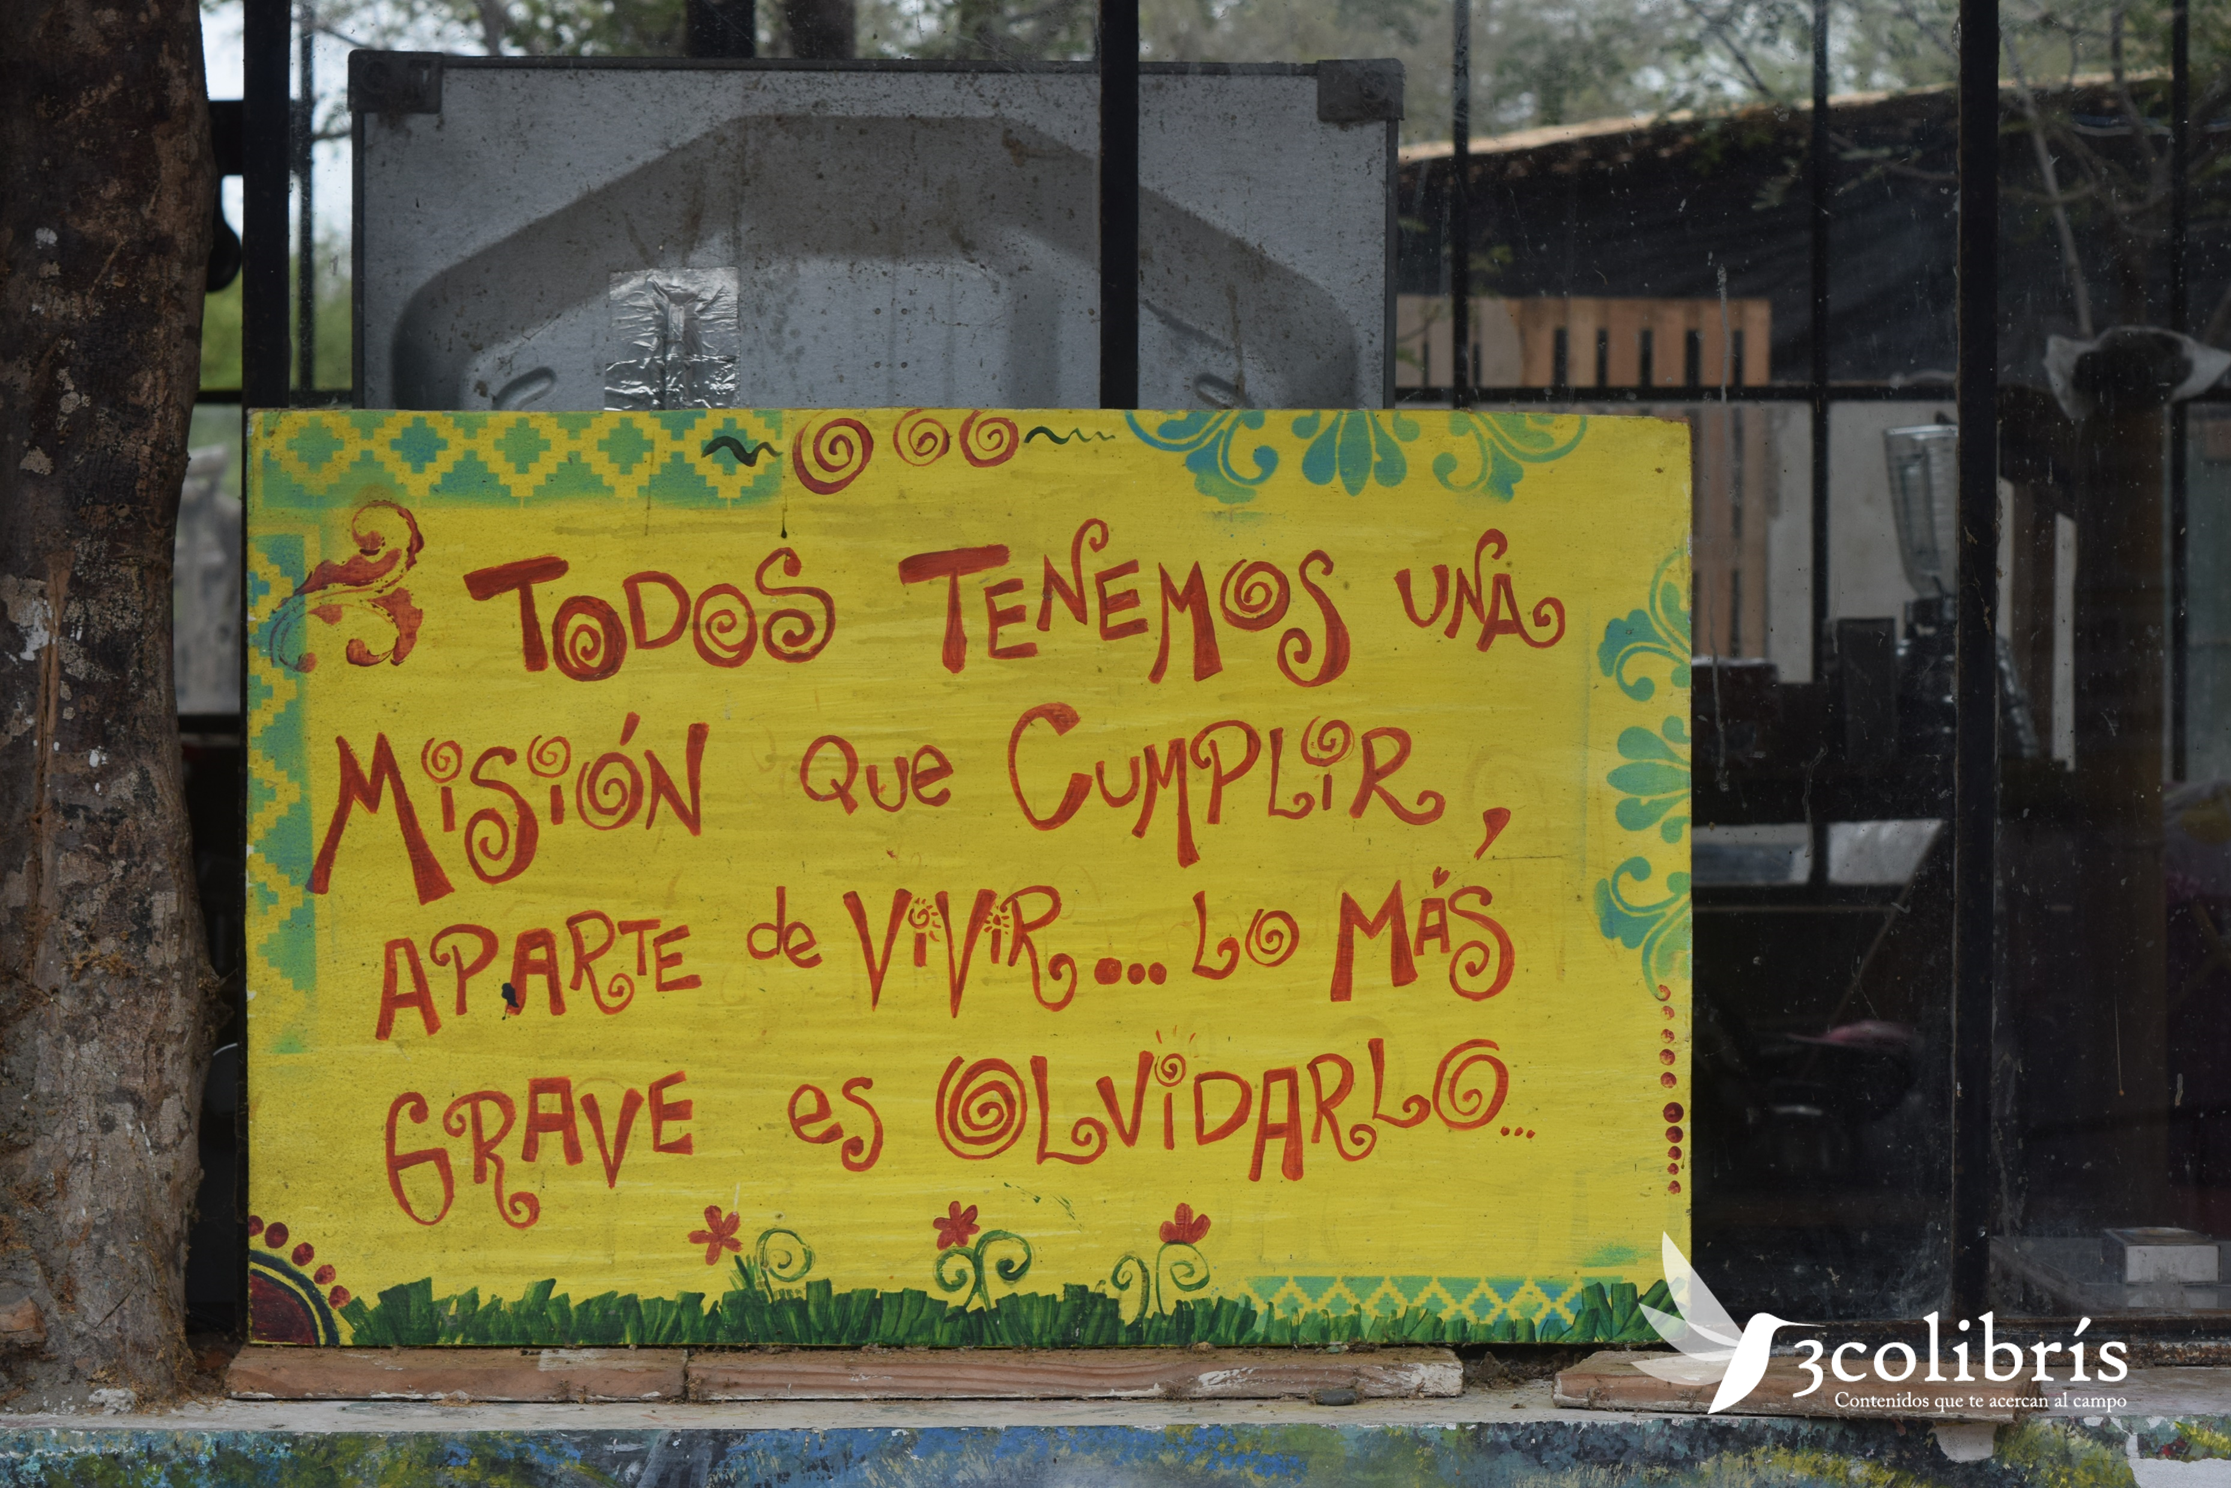 Todos Tenemos una
Misión que Cumplir,
aparte de Vivir... Lo Más
Grave es Olvidarlo...
3colibrís
Contenidos que te acercan al campo